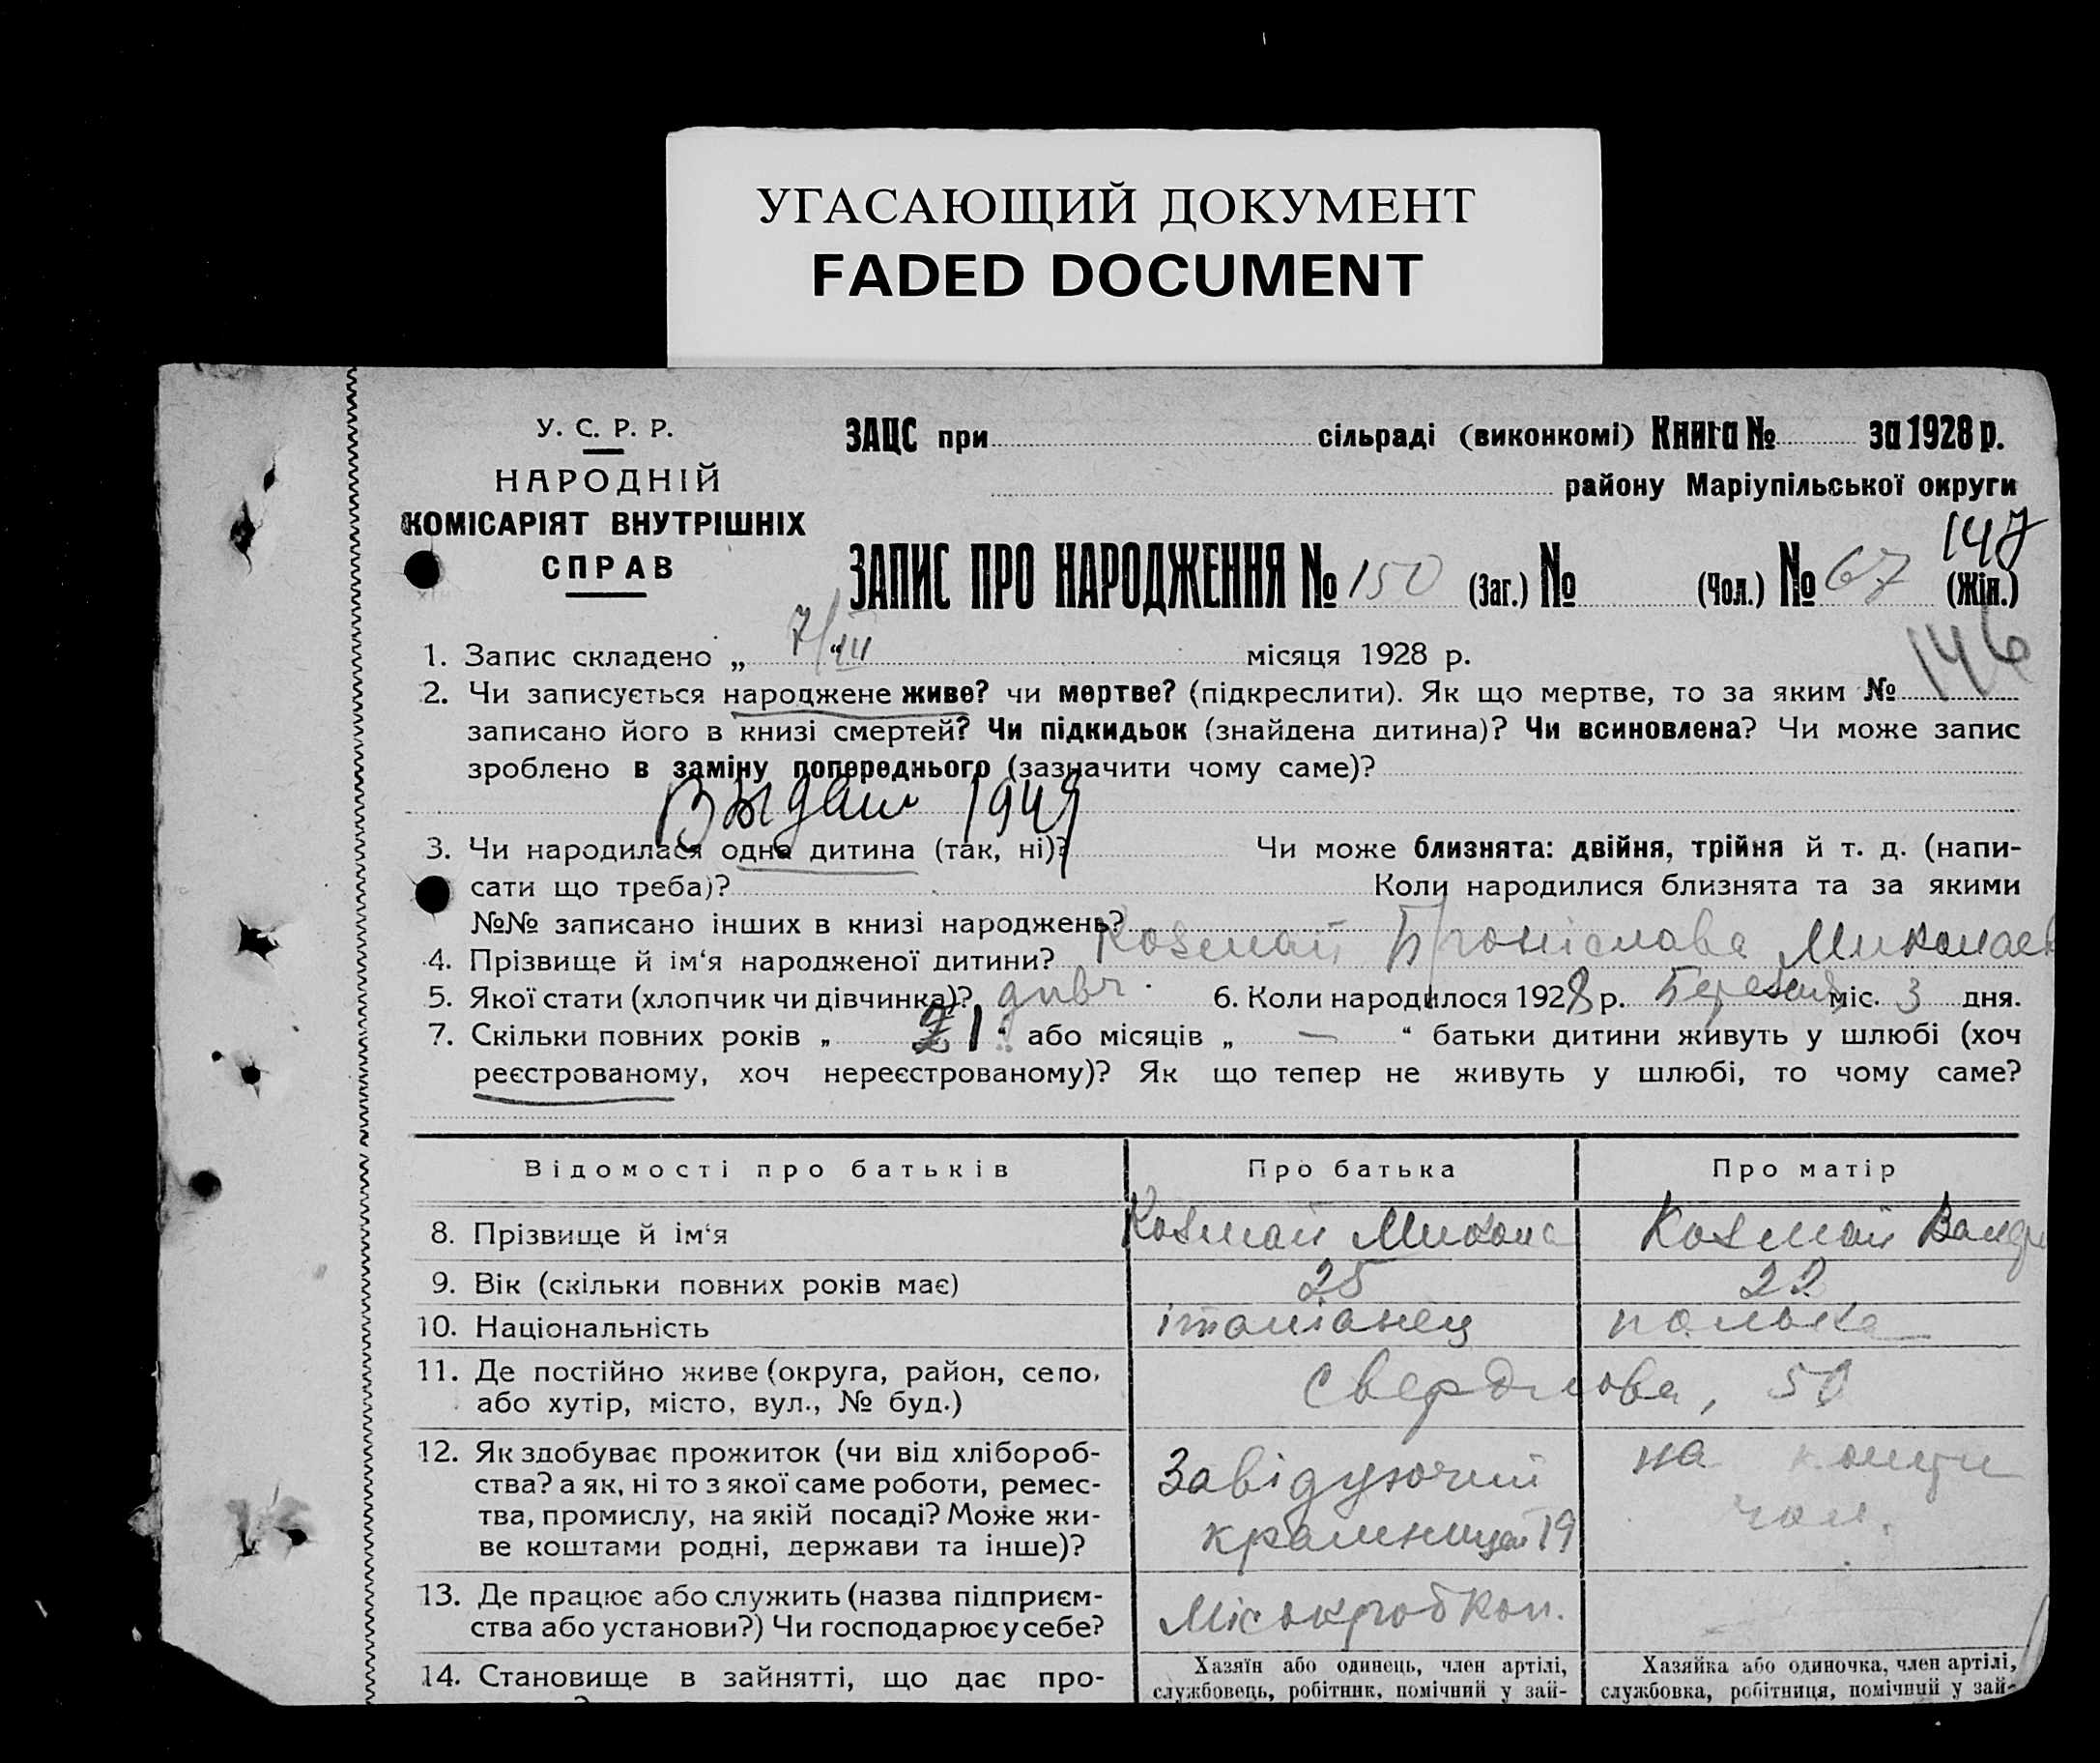 УГАСАЮЩИЙ ДОКУМЕНТ
FADED DOCUMENT
У. С. Р. Р.
НАРОДНІЙ
КОМІСАРІЯТ ВНУТРІШНІХ
СПРАВ
ЗАЦС при сільраді (виконкомі) Книга № за 1928 р.
району Маріупільської округи
147
ЗАПИС ПРО НАРОДЖЕННЯ № 150 (Заг.) № (Чол.) № 67 (Жін.)
146
1. Запис складено „ 7/III “ місяця 1928 р.
2. Чи записується народжене живе? чи мертве? (підкреслити). Як що мертве, то за яким №
записано його в книзі смертей? Чи підкидьок (знайдена дитина)? Чи всиновлена? Чи може запис
зроблено в заміну попереднього (зазначити чому саме)?
1949
3. Чи народилася одна дитина (так, ні)? Чи може близнята: двійня, трійня й т. д. (напи-
сати що треба)? Коли народилися близнята та за якими
№№ записано інших в книзі народжень?
4. Прізвище й ім‘я народженої дитини? Броніслава
5. Якої стати (хлопчик чи дівчинка)? дівч. 6. Коли народилося 1928 р. Березня міс. 3 дня.
7. Скільки повних років „ 1 “ або місяців „ — “ батьки дитини живуть у шлюбі (хоч
реєстрованому, хоч нереєстрованому)? Як що тепер не живуть у шлюбі, то чому саме?
Відомості про батьків Про батька Про матір
8. Прізвище й ім‘я Микола
9. Вік (скільки повних років має) 25 22
10. Національність італіанец полька
11. Де постійно живе (округа, район, село,
або хутір, місто, вул., № буд.) Свердлова, 50
12. Як здобуває прожиток (чи від хлібороб-
ства? а як, ні то з якої саме роботи, ремес-
тва, промислу, на якій посаді? Може жи-
ве коштами родні, держави та інше)?
Завідуючий
крамницею 19
на кошти
чол.
13. Де працює або служить (назва підприєм-
ства або установи?) Чи господарює у себе?
14. Становище в зайнятті, що дає про-
Хазяїн або одинець, член артілі,
службовець, робітник, помічний у зай-
Хазяйка або одиночка, член артілі,
службовка, робітниця, помічний у зай-